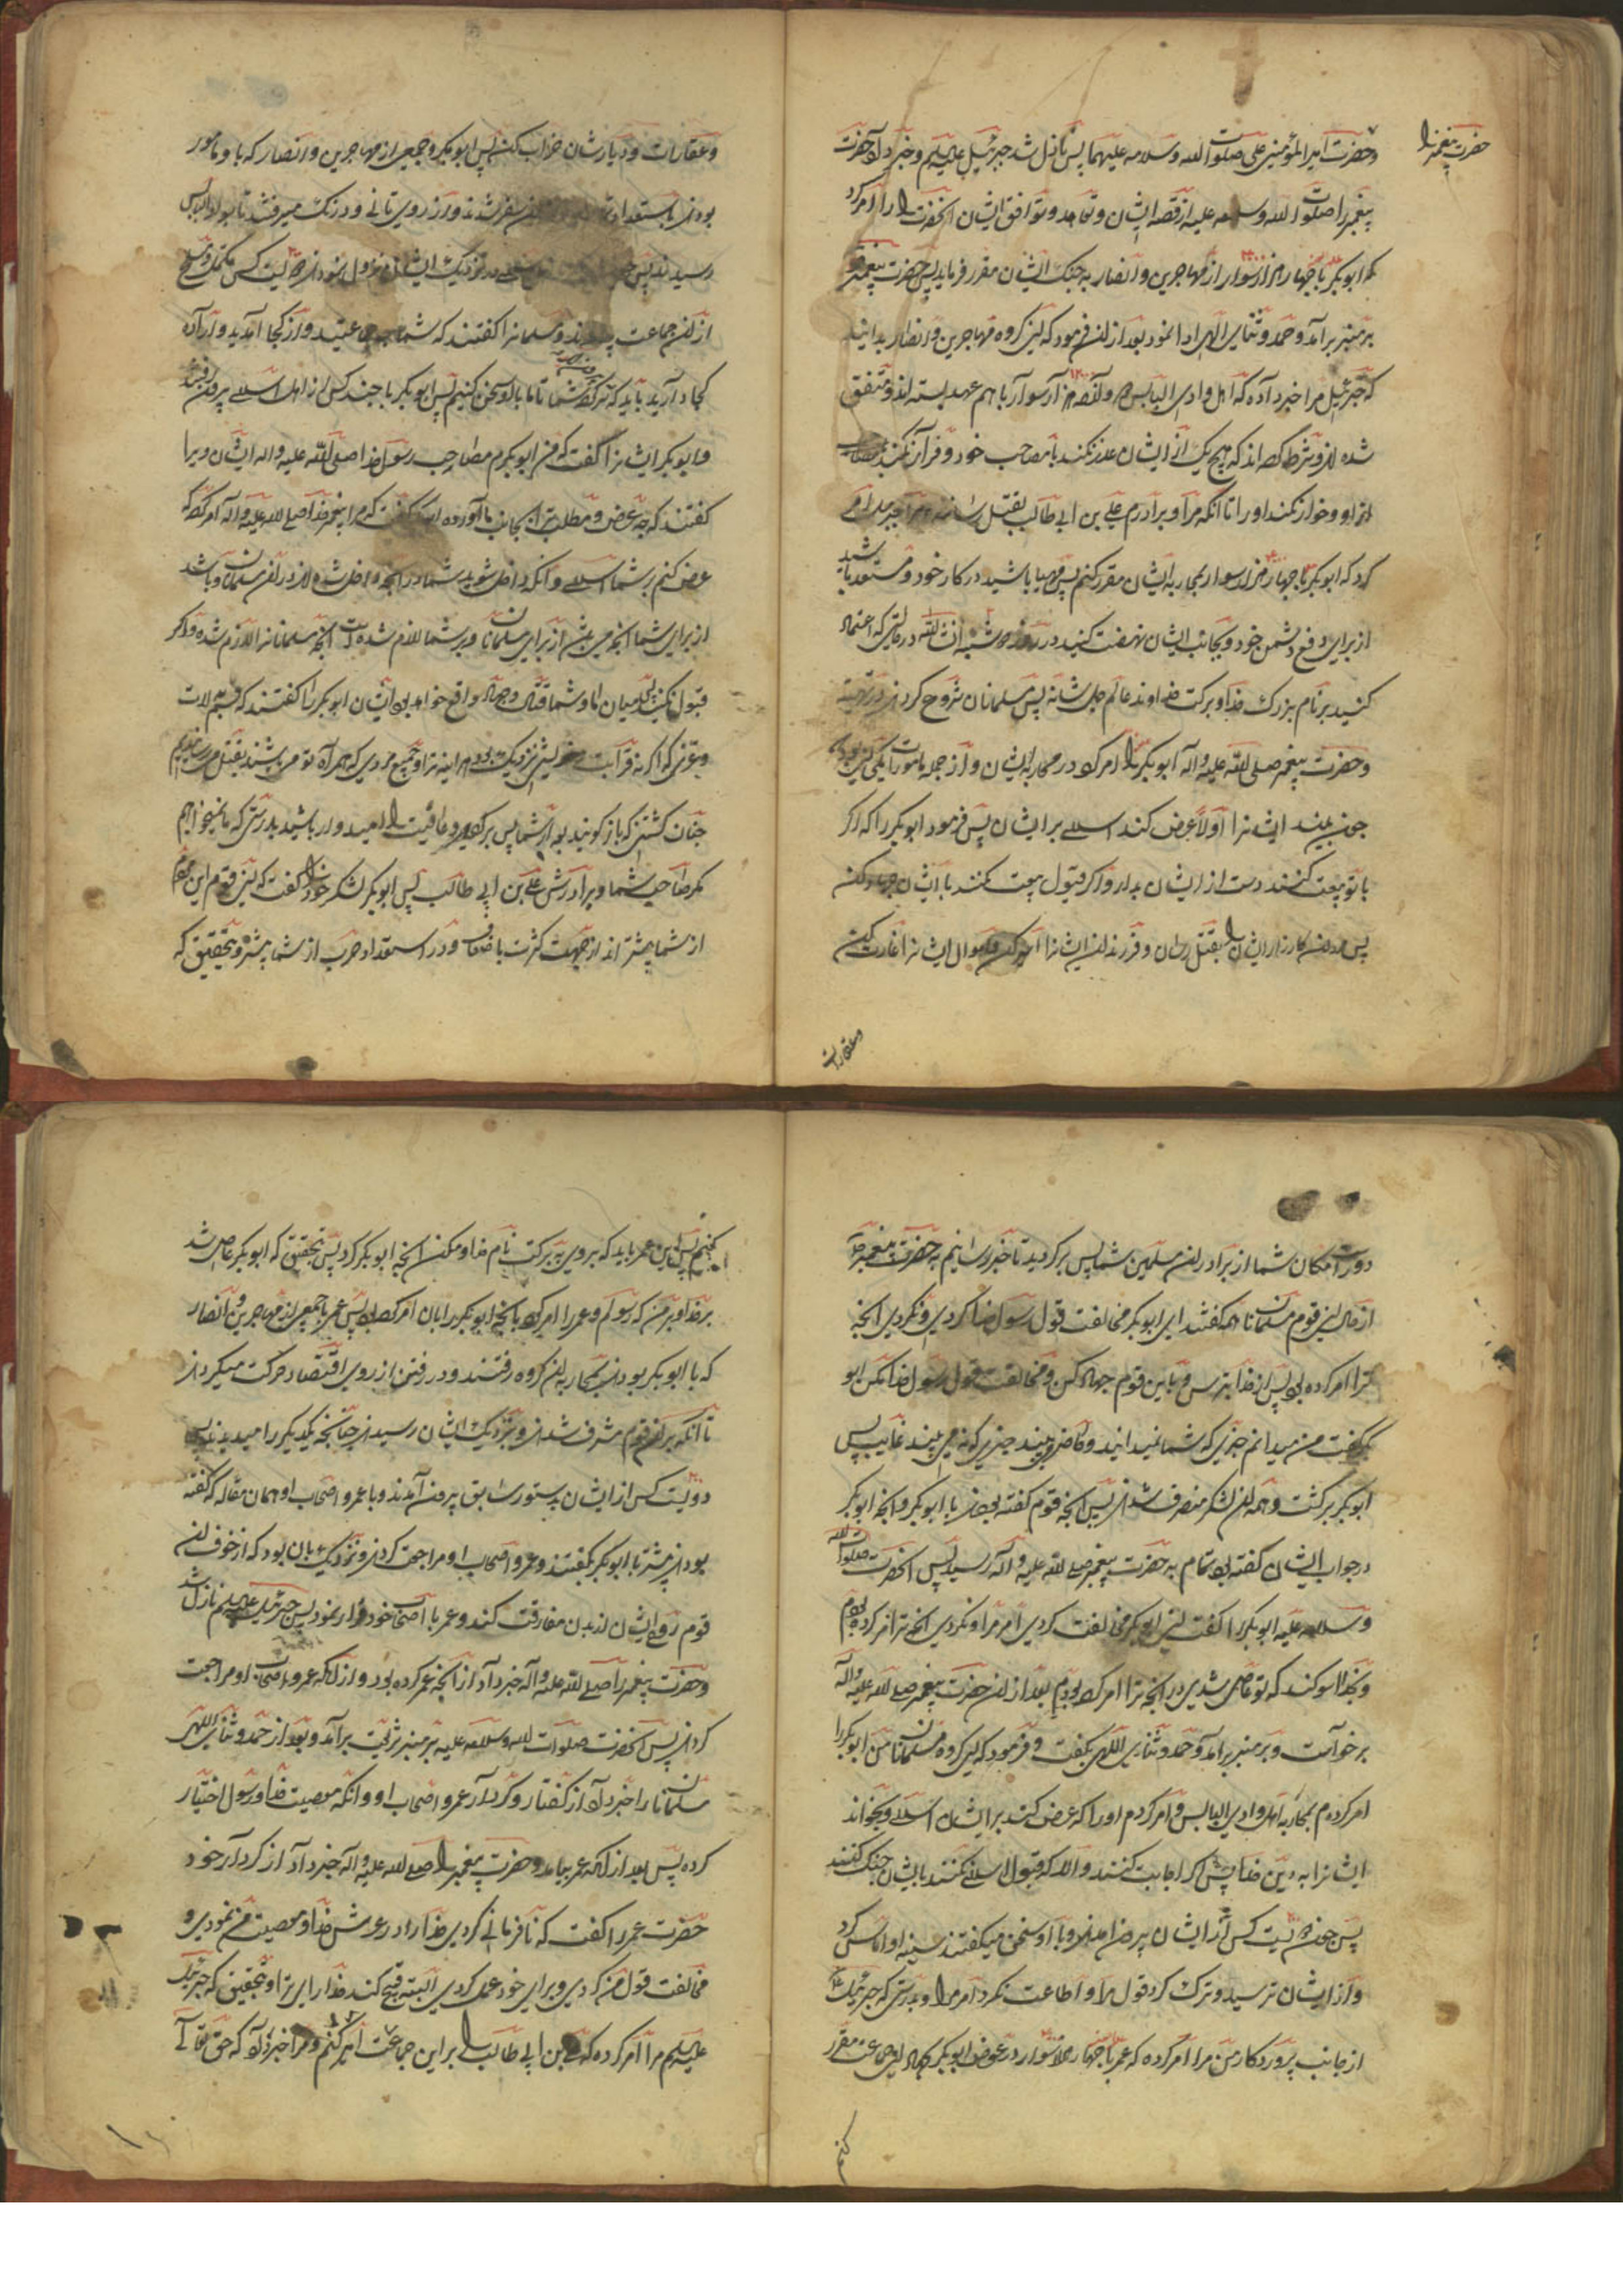 حضرت پیغمبر را
و حضرت امیر المؤمنین علی صلوات الله وسلامه علیهما پس نازل شد جبرئیل علیه السلم و خبر داد حضرت
پیغمبر را صلوات الله وسلامه علیه از قصه ایشان و تعاهد و توافق ایشان و آنحضرت را امر کرد
که ابوبکر با چهار هزار سوار از مهاجرین و انصار به جنک ایشان مقرر فرماید پس حضرت پیغمبر
بر منبر برآمد و حمد و ثنای الهی ادا نمود بعد از ان فرمود که ای کروه مهاجرین و انصار بدانید
که جبرئیل مرا خبر داده که اهل وادی الیابس هزار سوار با هم عهد بسته اند و متفق
شده اند و شرط کرده اند که هیچ یک از ایشان غدر نکند با مصاحب خود و فرار نکند
از او و خوار نکند او را تا انکه مرا و برادرم علی بن ابی طالب بقتل رسانند و مرا جبرئیل امر
کرد که ابوبکر با چهار هزار سوار بمحاربه ایشان مقرر کنم پس مهیا باشید در کار خود و مستعد باشید
از برای دفع دشمن خود و بجانب ایشان نهضت کنید در روز دوشنبه ان شاء الله در حالتی که اعتماد
کنید بر نام بزرک خدا و برکت خداوند عالم جل شانه پس مسلمانان شروع کردند در تهیه
و حضرت پیغمبر صلی الله علیه واله ابوبکر را امر کرد در محاربه ایشان و از جمله مامورات یکی این بود که
چون بیند ایشانرا اولا عرض کند اسلام بر ایشان پس فرمود ابوبکر را که اکر
با تو بیعت کنند دست از ایشان بدار و اکر قبول بیعت نکنند با ایشان جهاد کن
پس مردان کارزار ایشان را بقتل رسان و فرزندان ایشانرا اسیر کن و اموال ایشانرا غارت کن
وعقارات
وعقارات و دیارشان خراب کن پس ابوبکر و جمعی از مهاجرین و انصار که با او مامور
بودند با استعداد سفر شدند و از روی تانی و درنک میرفتند تا بوادی الیابس
رسیدند پس در نزدیک ایشان نزول نمودند دویست کس مکمل و مسلح
از ان جماعت و مسلمانرا کفتند که شما چه جماعتید و از کجا آمدید و اراده
کجا دارید باید که بزرک شما تا ما با او سخن کنیم پس ابوبکر با چند کس از اهل اسلام بیرون رفتند
و ابوبکر ایشانرا کفت که من ابوبکرم مصاحب رسول خدا صلی الله علیه واله ایشان ویرا
کفتند که چه غرض و مطلب ترا بجانب ما آورده است کفت که مرا پیغمبر خدا صلی الله علیه واله امر کرده که
عرض کنم بر شما اسلام و آنکه داخل شوید شما در آنچه داخل شده اند در آن مسلمانان و باشد
از برای شما آنچه می باشد از برای مسلمانان و بر شما لازم شده است آنچه مسلمانرا لازم شده و اکر
قبول نکنید پس میان ما و شما قتال و جدال واقع خواهد بود ایشان ابوبکر را کفتند که قسم بلات
و عزی که اکر نه قرابت خویشی نزدیک بود هر اینه ترا و جمیع مردمی که همراه تو می باشند بقتل میرسانیدیم
چنان کشتنی که باز کویند بعد از شما پس برکردید و عافیت را امیدوار باشید بدرستی که ما نمیخواهیم
مکر صاحب شما و برادرش علی بن ابی طالب پس ابوبکر لشکر خود را کفت که این قوم
از شما بیشتر اند از جهت کثرت با ضعاف و در استعداد حرب از شما بیشتر و بتحقیق که
دور است مکان شما از برادران مسلمین شما پس برکردید تا خبر رسانیم به حضرت پیغمبر
از حال این قوم مسلمانان همه کفتند ای ابوبکر مخالفت قول رسول خدا کردی و نکردی آنچه
ترا امر کرده بود پس از خدا بترس و با این قوم جهاد کن و مخالفت قول رسول خدا مکن ابو
بکر کفت من میدانم چیزی که شما نمیدانید و حاضر می بیند چیزی که نمی بیند غایب پس
ابوبکر برکشت و همه آن لشکر منصرف شدند پس آنچه قوم کفته بودند با ابوبکر و آنچه ابوبکر
در جواب ایشان کفته بود تمام به حضرت پیغمبر صلی الله علیه واله رسید پس آنحضرت صلوات الله
وسلامه علیه ابوبکر را کفت ای ابوبکر مخالفت کردی امر مرا و نکردی آنچه ترا امر کرده بودم
و بخدا سوکند که تو عاصی شدی در آنچه ترا امر کرده بودم بعد از آن حضرت پیغمبر صلی الله علیه واله
برخواست و بر منبر برآمد و حمد و ثنای الهی بکفت و فرمود که ای کروه مسلمانان من ابوبکر را
امر کردم بمحاربه اهل وادی الیابس و امر کردم او را که عرض کند بر ایشان اسلام و بخواند
ایشانرا به دین خدا پس اکر اجابت کنند و الا که قبول اسلام نکنند با ایشان جنک کنند
پس چون دویست کس از ایشان بیرون آمدند و با او سخن میکفتند سینه او آماس کرد
و از ایشان ترسید و ترک کرد قول مرا و اطاعت نکرد امر مرا و بدرستی که جبرئیل
از جانب پروردکار من مرا امر کرده که عمر با چهار هزار سوار در عوض ابوبکر بجهاد این جماعت مقرر
کنم
کنم پس ای عمر باید که بروی به برکت نام خدا و مکن آنچه ابوبکر کرد پس بتحقیق که ابوبکر عاصی شد
بر خدا و بر من که رسولم و عمر را امر کرد بآنچه ابوبکر را بان امر کرده بود پس عمر با جمعی از مهاجرین و انصار
که با ابوبکر بودند بمحاربه آن کروه رفتند و در رفتن از روی اقتصاد حرکت میکردند
تا آنکه بر آن قوم مشرف شدند و نزدیک ایشان رسیدند چنانچه یکدیکر را میدیدند پس
دویست کس از ایشان بدستور سابق بیرون آمدند و با عمر و اصحاب او همان مقاله که کفته
بودند پیشتر با ابوبکر بکفتند و عمر و اصحاب او مراجعت کردند و نزدیک بان بود که از خوف آن
قوم روح ایشان از بدن مفارقت کند و عمر با اصحاب خود فرار نمود پس جبرئیل علیه السلم نازل شد
و حضرت پیغمبر را صلی الله علیه واله خبر داد از آنچه عمر کرده بود و از آنکه عمر و اصحاب او مراجعت
کردند پس آنحضرت صلوات الله وسلامه علیه بر منبر برآمد و بعد از حمد و ثنای الهی
مسلمانان را خبر داد از کفتار و کردار عمر و اصحاب او و آنکه معصیت خدا و رسول اختیار
کرده پس بعد از آنکه عمر بیامد و حضرت پیغمبر را صلی الله علیه واله خبر داد از کردار خود
حضرت عمر را کفت که نافرمانی کردی خدا را در عرش خدا و معصیت من نمودی و
مخالفت قول من کردی و برای خود عمل کردی البته قبیح کند خدا رای ترا و بتحقیق که جبرئیل
علیه السلم مرا امر کرده که علی بن ابی طالب را بر این جماعت امیر کنم و مرا خبر داد که حق تعالی